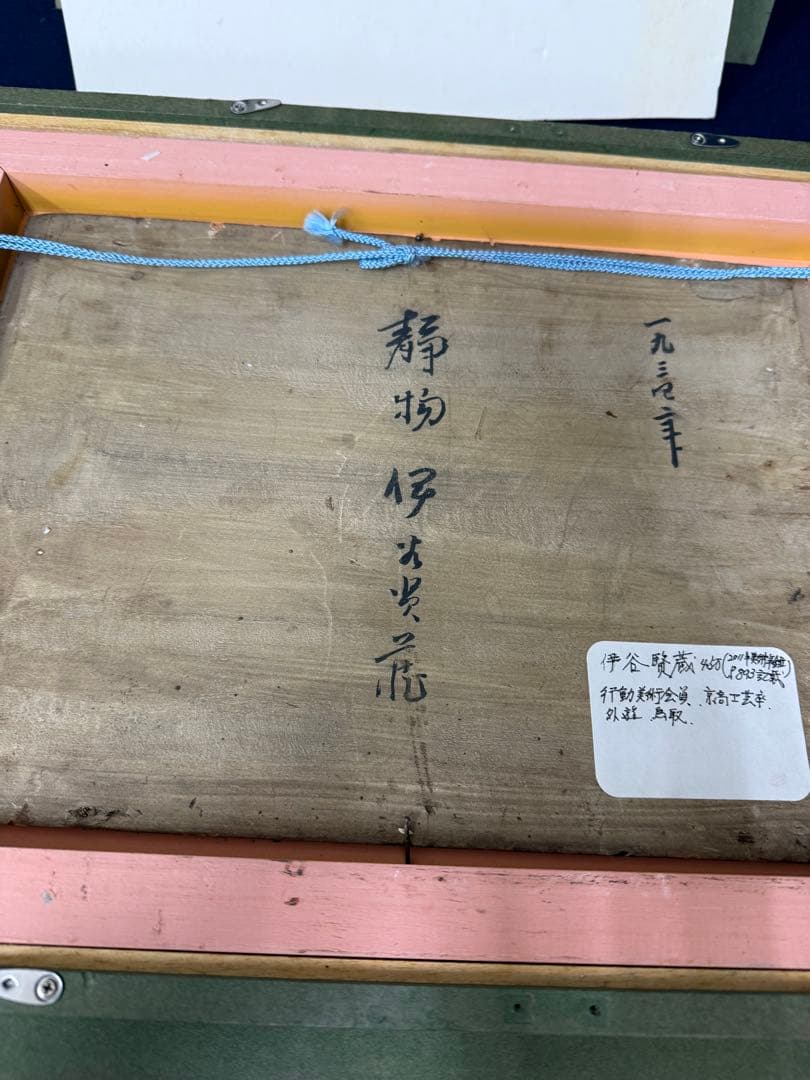 一九三四年
静物 伊谷賢蔵
伊谷賢蔵 450(2011年美術年鑑
P.893記載)
行動美術会員、京高工芸卒.
外遊 鳥取.